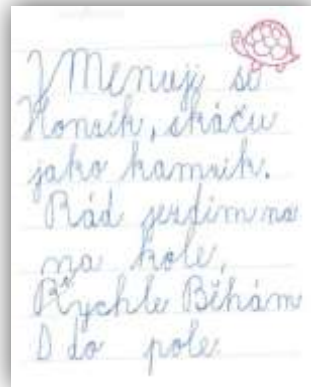 JMenuji se
Honzík, skáču
jako kamzík.
Rád jezdím na
na kole,
Rychle Běhám
D do pole.